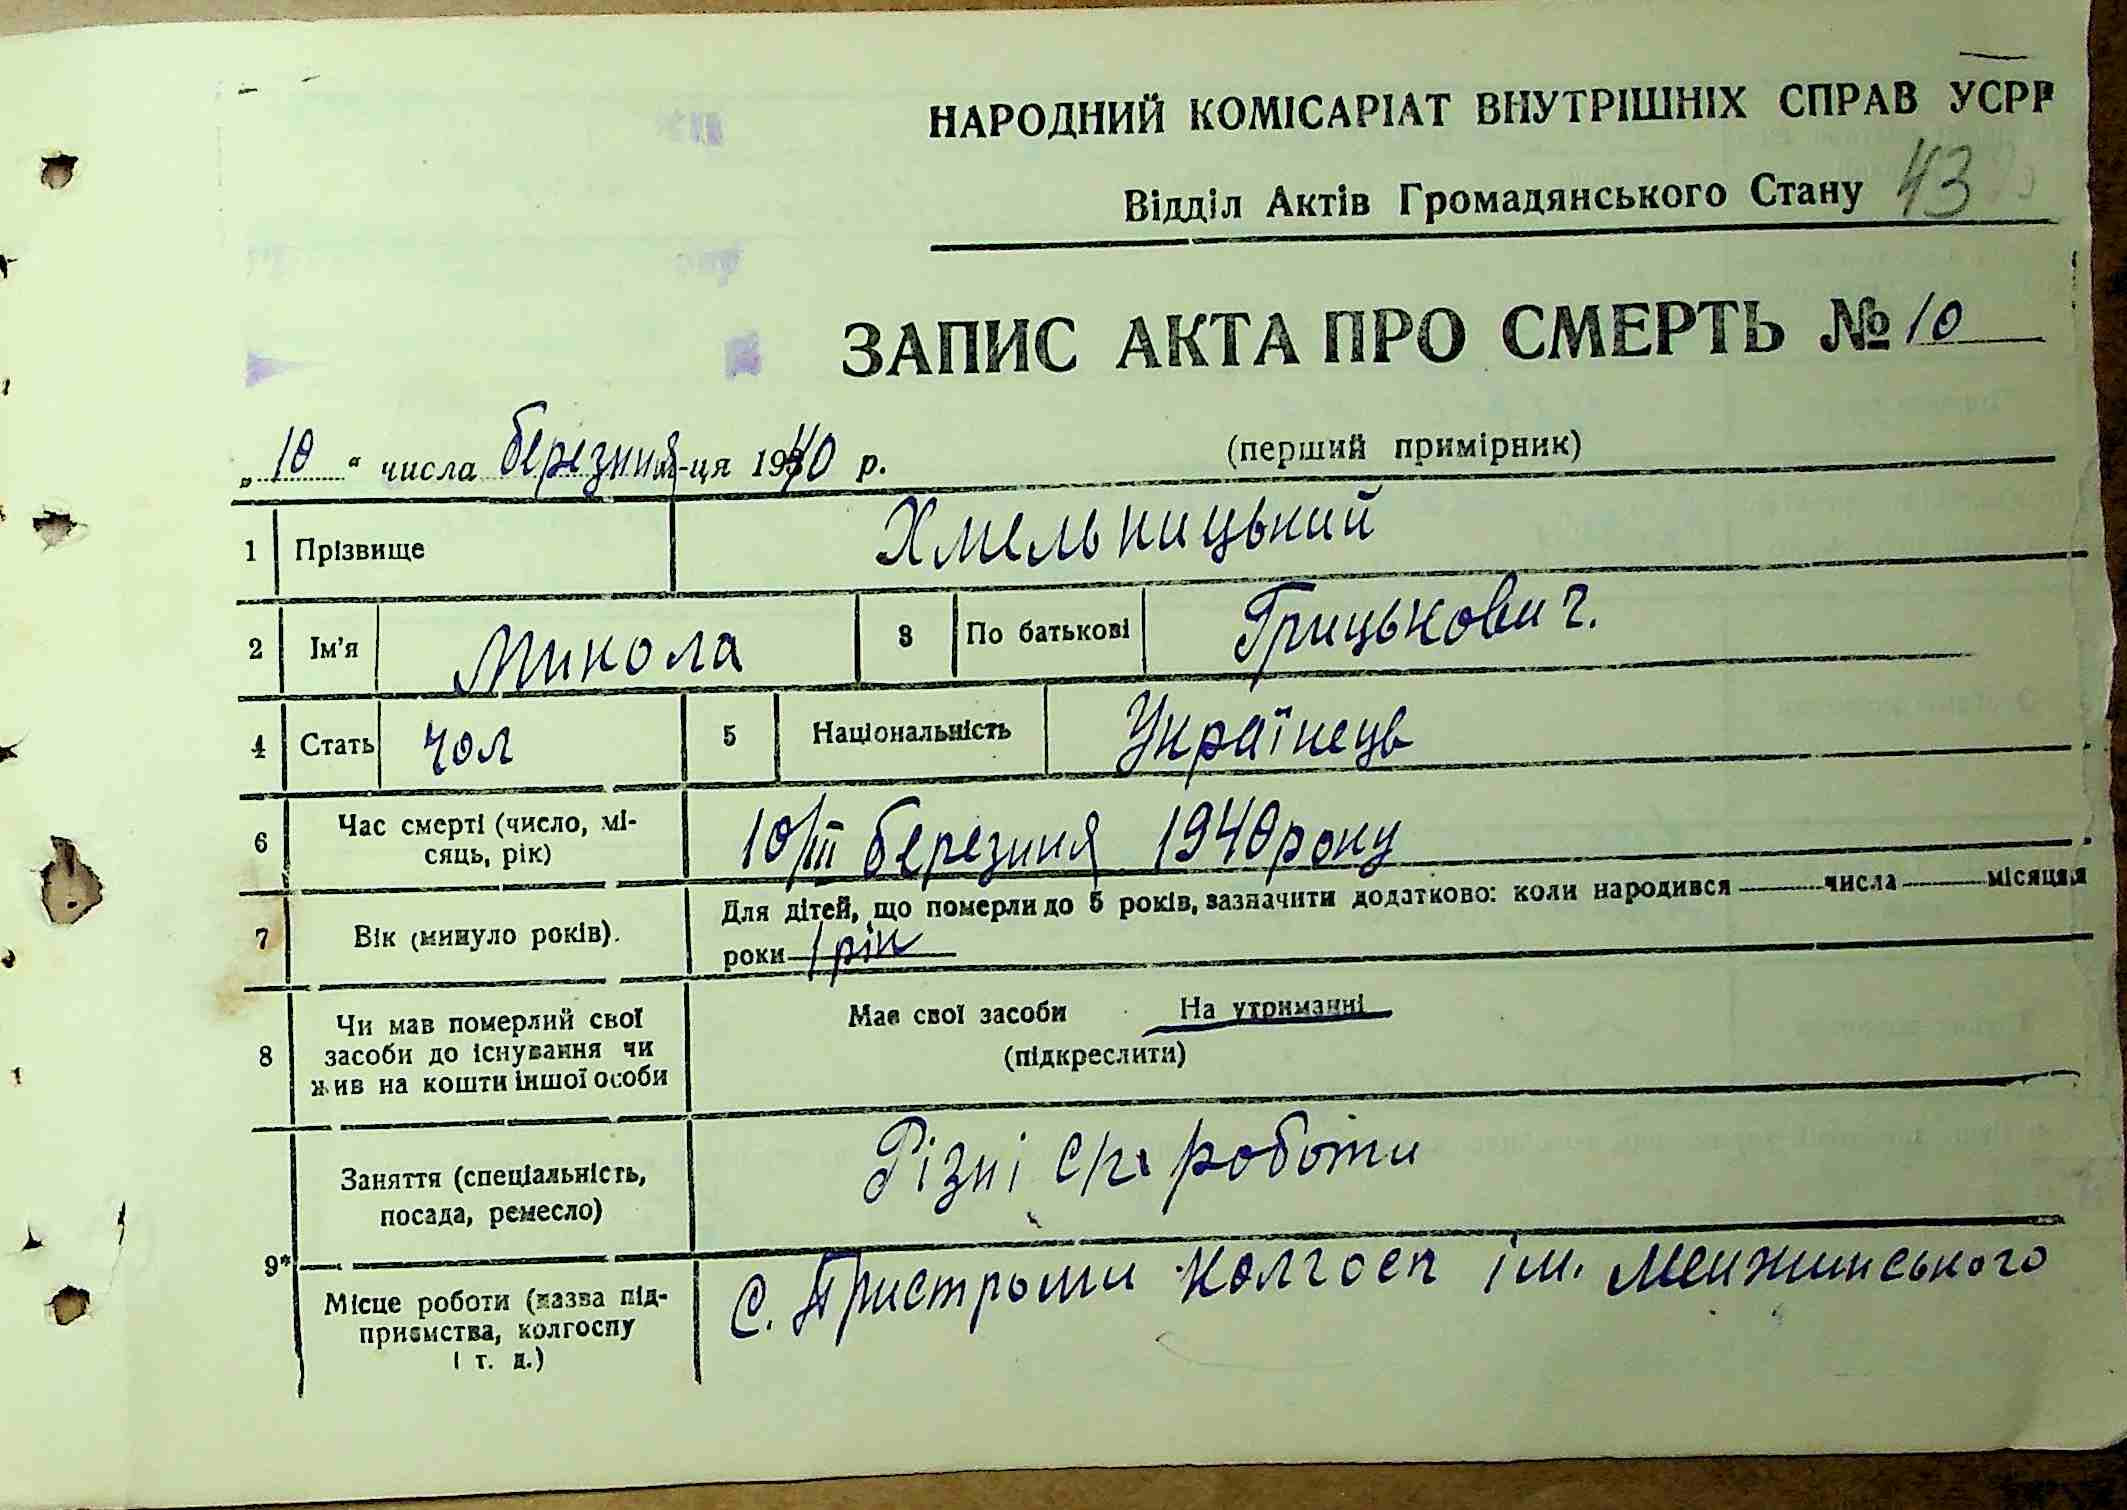 НАРОДНИЙ КОМІСАРІАТ ВНУТРІШНІХ СПРАВ УСРР
Відділ Актів Громадянського Стану 43
ЗАПИС АКТА ПРО СМЕРТЬ № 10
„10“ числа березня м-ця 1940 р. (перший примірник)
1 Прізвище Хмельницький
2 Ім'я Микола 3 По батькові Грицькович.
4 Стать чол 5 Національність Українець
6 Час смерті (число, мі-
сяць, рік) 10/III березння 1940 року
7 Вік (минуло років). Для дітей, що померли до 5 років, зазначити додатково: коли народився числа місяця
роки 1 рік
8 Чи мав померлий свої
засоби до існування чи
жив на кошти іншої особи
Має свої засоби На утриманні
(підкреслити)
9* Заняття (спеціальність,
посада, ремесло) Різні с/г роботи
Місце роботи (назва під-
приємства, колгоспу
і т. д.)
С. Пристроми Колгосп ім. Менжинського